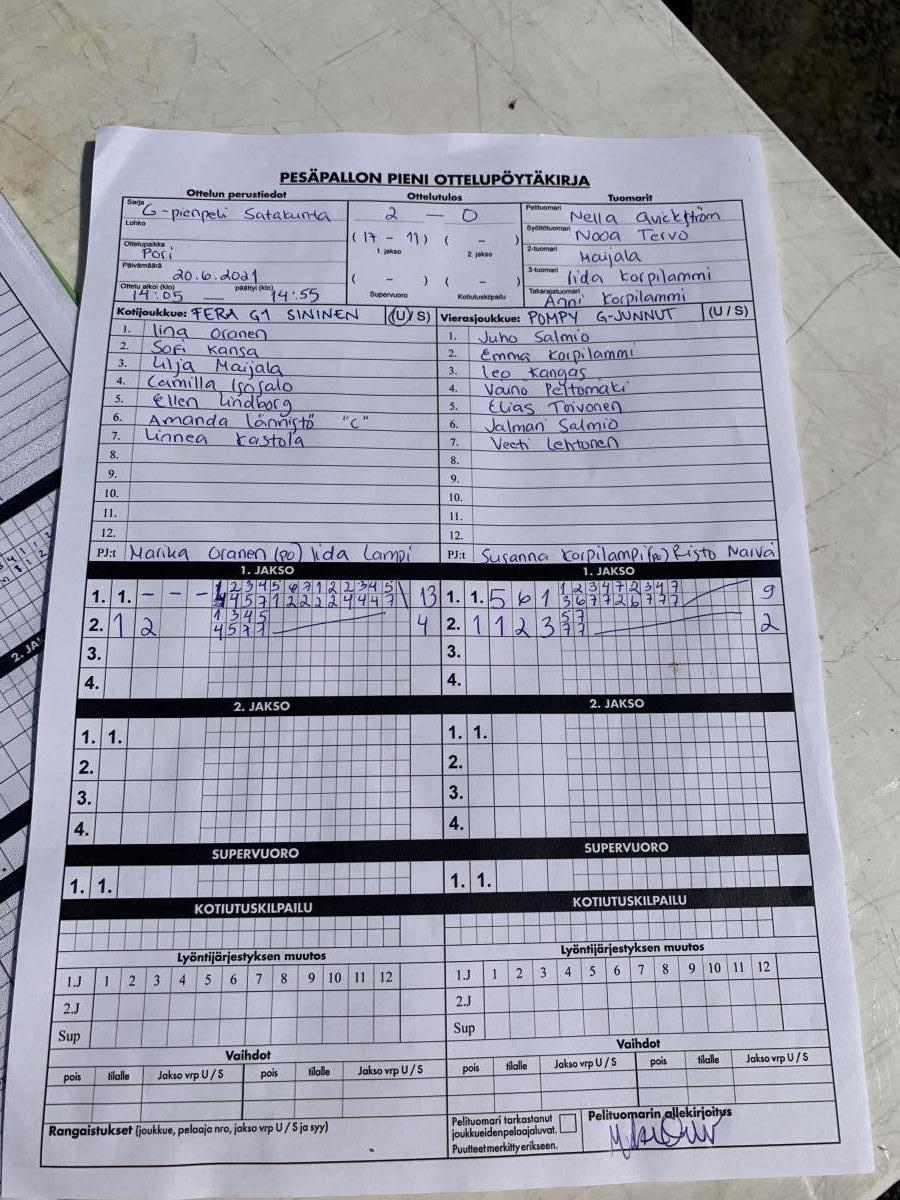 PESÄPALLON PIENI OTTELUPÖYTÄKIRJA
Ottelun perustiedot Ottelutulos Tuomarit
Sarja G-pienpeli Satakunta
Lohko
Ottelupaikka Pori
Päivämäärä 20.6.2021
Ottelu alkoi (klo) 14:05 — päättyi (klo) 14:55
2 — 0
(17 - 11) ( - )
1. jakso 2. jakso
( - ) ( - )
Supervuoro Kotiutuskilpailu
Pelituomari Nella Qvickström
Syöttötuomari Nooa Tervo
2-tuomari Maijala
3-tuomari Iida Korpilammi
Takarajatuomari Anni Korpilammi
Kotijoukkue: FERA G1 SININEN (U / S)
1. Iina Oranen
2. Sofi Kansa
3. Lilja Maijala
4. Camilla Isosalo
5. Ellen Lindborg
6. Amanda Lännistö "C"
7. Linnea Kastola
8.
9.
10.
11.
12.
PJ:t Marika Oranen (po) Iida Lampi
Vierasjoukkue: POMPY G-JUNNUT (U / S)
1. Juho Salmio
2. Emma Korpilammi
3. Leo Kangas
4. Väinö Peltomäki
5. Elias Toivonen
6. Jalmari Salmio
7. Veeti Lehtonen
8.
9.
10.
11.
12.
PJ:t Susanna Korpilampi (po) Risto Närvä
1. JAKSO 1. JAKSO
1. 1. - - - 1 2 3 4 5 6 7 1 2 2 3 4 5 13
4 4 5 7 1 2 2 2 2 4 4 4 7
2. 1 2 1 3 4 5 4
4 5 7 7
3.
4.
1. 1. 5 6 1 1 2 3 4 7 2 3 4 7 9
3 6 7 7 2 6 7 7 7
2. 1 1 2 3 5 7 2
7 7
3.
4.
2. JAKSO 2. JAKSO
1. 1. 1. 1.
2. 2.
3. 3.
4. 4.
SUPERVUORO SUPERVUORO
1. 1. 1. 1.
KOTIUTUSKILPAILU KOTIUTUSKILPAILU
Lyöntijärjestyksen muutos Lyöntijärjestyksen muutos
1.J 1 2 3 4 5 6 7 8 9 10 11 12 1.J 1 2 3 4 5 6 7 8 9 10 11 12
2.J 2.J
Sup Sup
Vaihdot Vaihdot
pois tilalle Jakso vrp U / S pois tilalle Jakso vrp U / S pois tilalle Jakso vrp U / S pois tilalle Jakso vrp U / S
Rangaistukset (joukkue, pelaaja nro, jakso vrp U / S ja syy)
Pelituomari tarkastanut
joukkueidenpelaajaluvat.
Puutteet merkitty erikseen.
Pelituomarin allekirjoitys